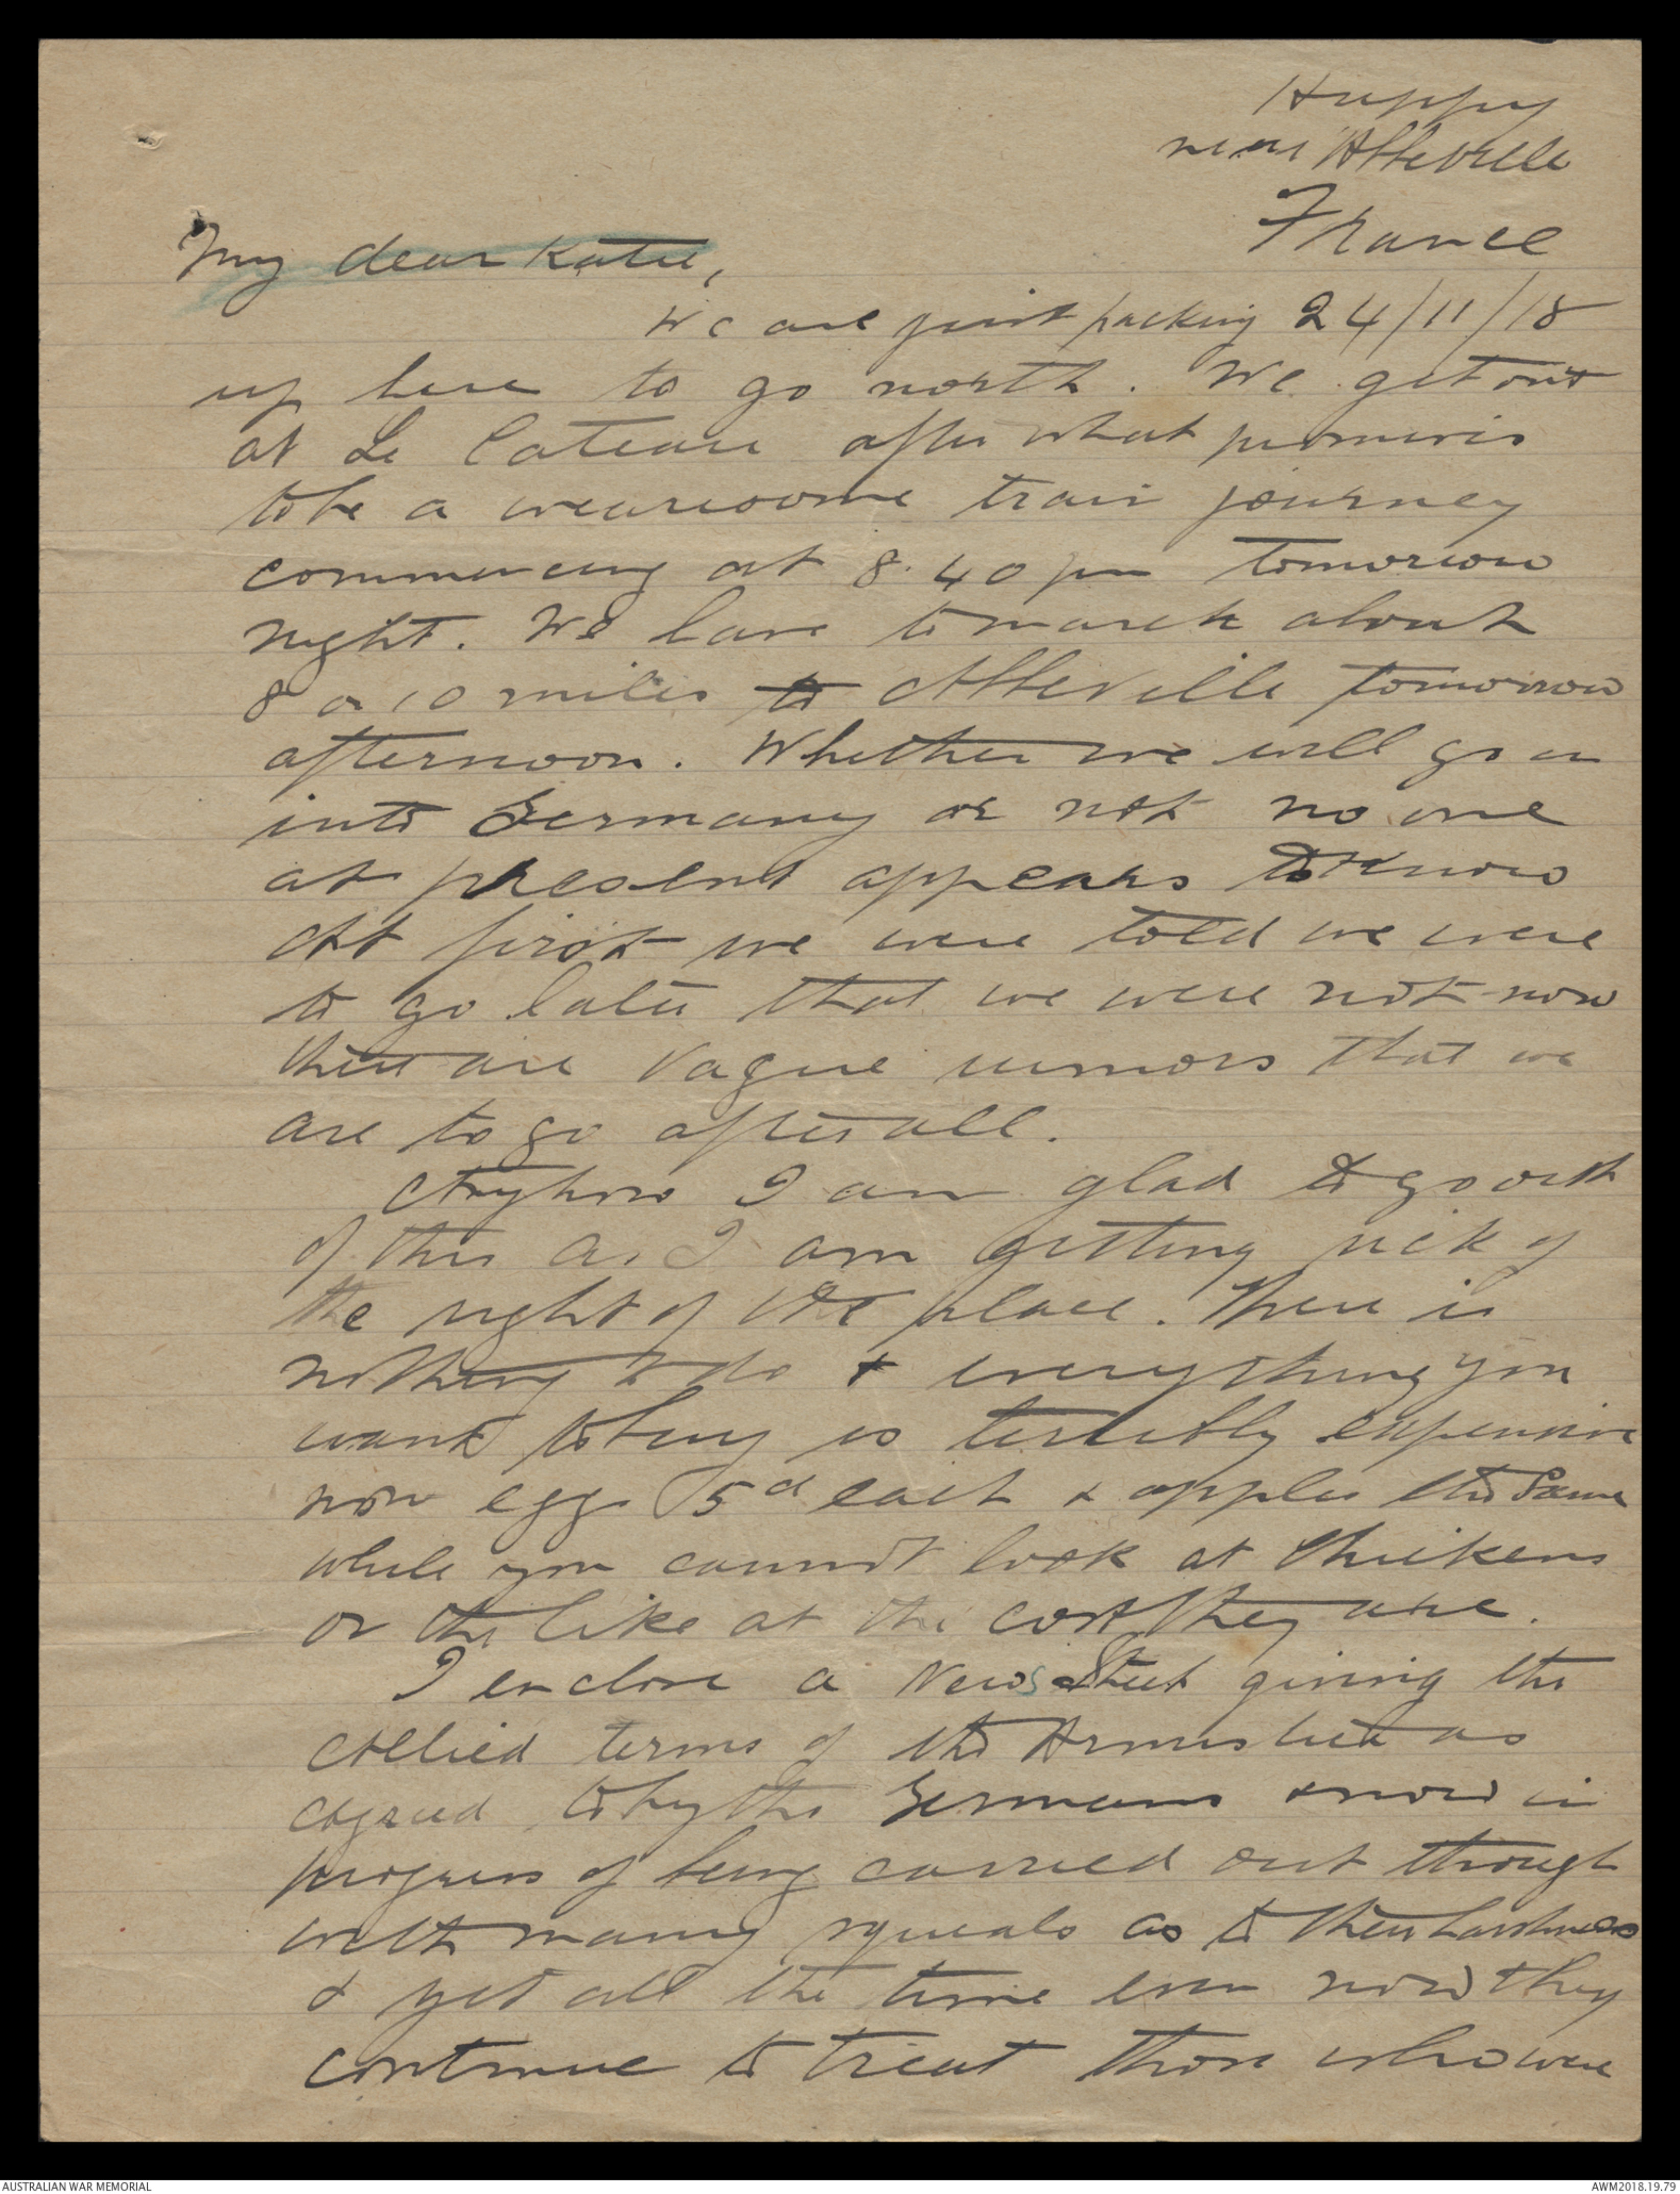 Huppy
near Abbeville
France
My dear Katie,
We are just packing 24/11/18
up here to go north. We get out
at Le Cateau after what promises
to be a wearisome train journey
commencing at 8.40 pm tomorrow
night. We have to march about
8 or 10 miles to Abbeville tomorrow
afternoon. Whether we will go on
into Germany or not no one
at present appears to know
At first we were told we were
to go later that we were not now
there are vague rumors that we
are to go after all.
Anyhow I am glad to go out
of this as I am getting sick of
the sight of the place. There is
nothing to do & everything you
want to buy is terribly expensive
now eggs 5d each & apples the same
while you cannot look at chickens
or the like at the cost they are.
I enclose a News Sheet giving the
Allied terms of the Armistice as
agreed to by the Germans & now in
progress of being carried out though
with many squeals as to their harshness
& yet all the time even now they
continue to treat those who were
AUSTRALIAN WAR MEMORIAL
AWM2018.19.79